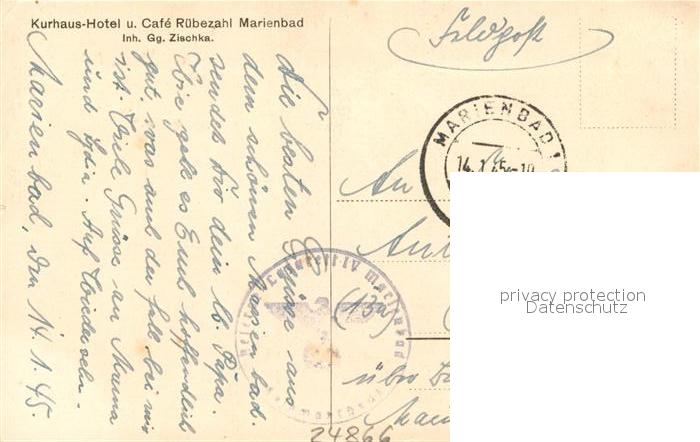 Kurhaus-Hotel u. Café Rübezahl Marienbad
Inh. Gg. Zischka.
Feldpost
Marienbad, den 14.1.45.
Die besten Grüsse aus
dem schönen Marienbad.
sendet Dir dein lb. Papa.
Wie geht es Euch hoffendlich
gut, was auch der fall bei mir
ist. Viele Grüsse an Mama
und Lydia. Auf Wiedersehn.
MARIENBAD 1
14.1.45-10
An
(13a)
über
Lazarett IV Marienbad
privacy protection
Datenschutz
24866